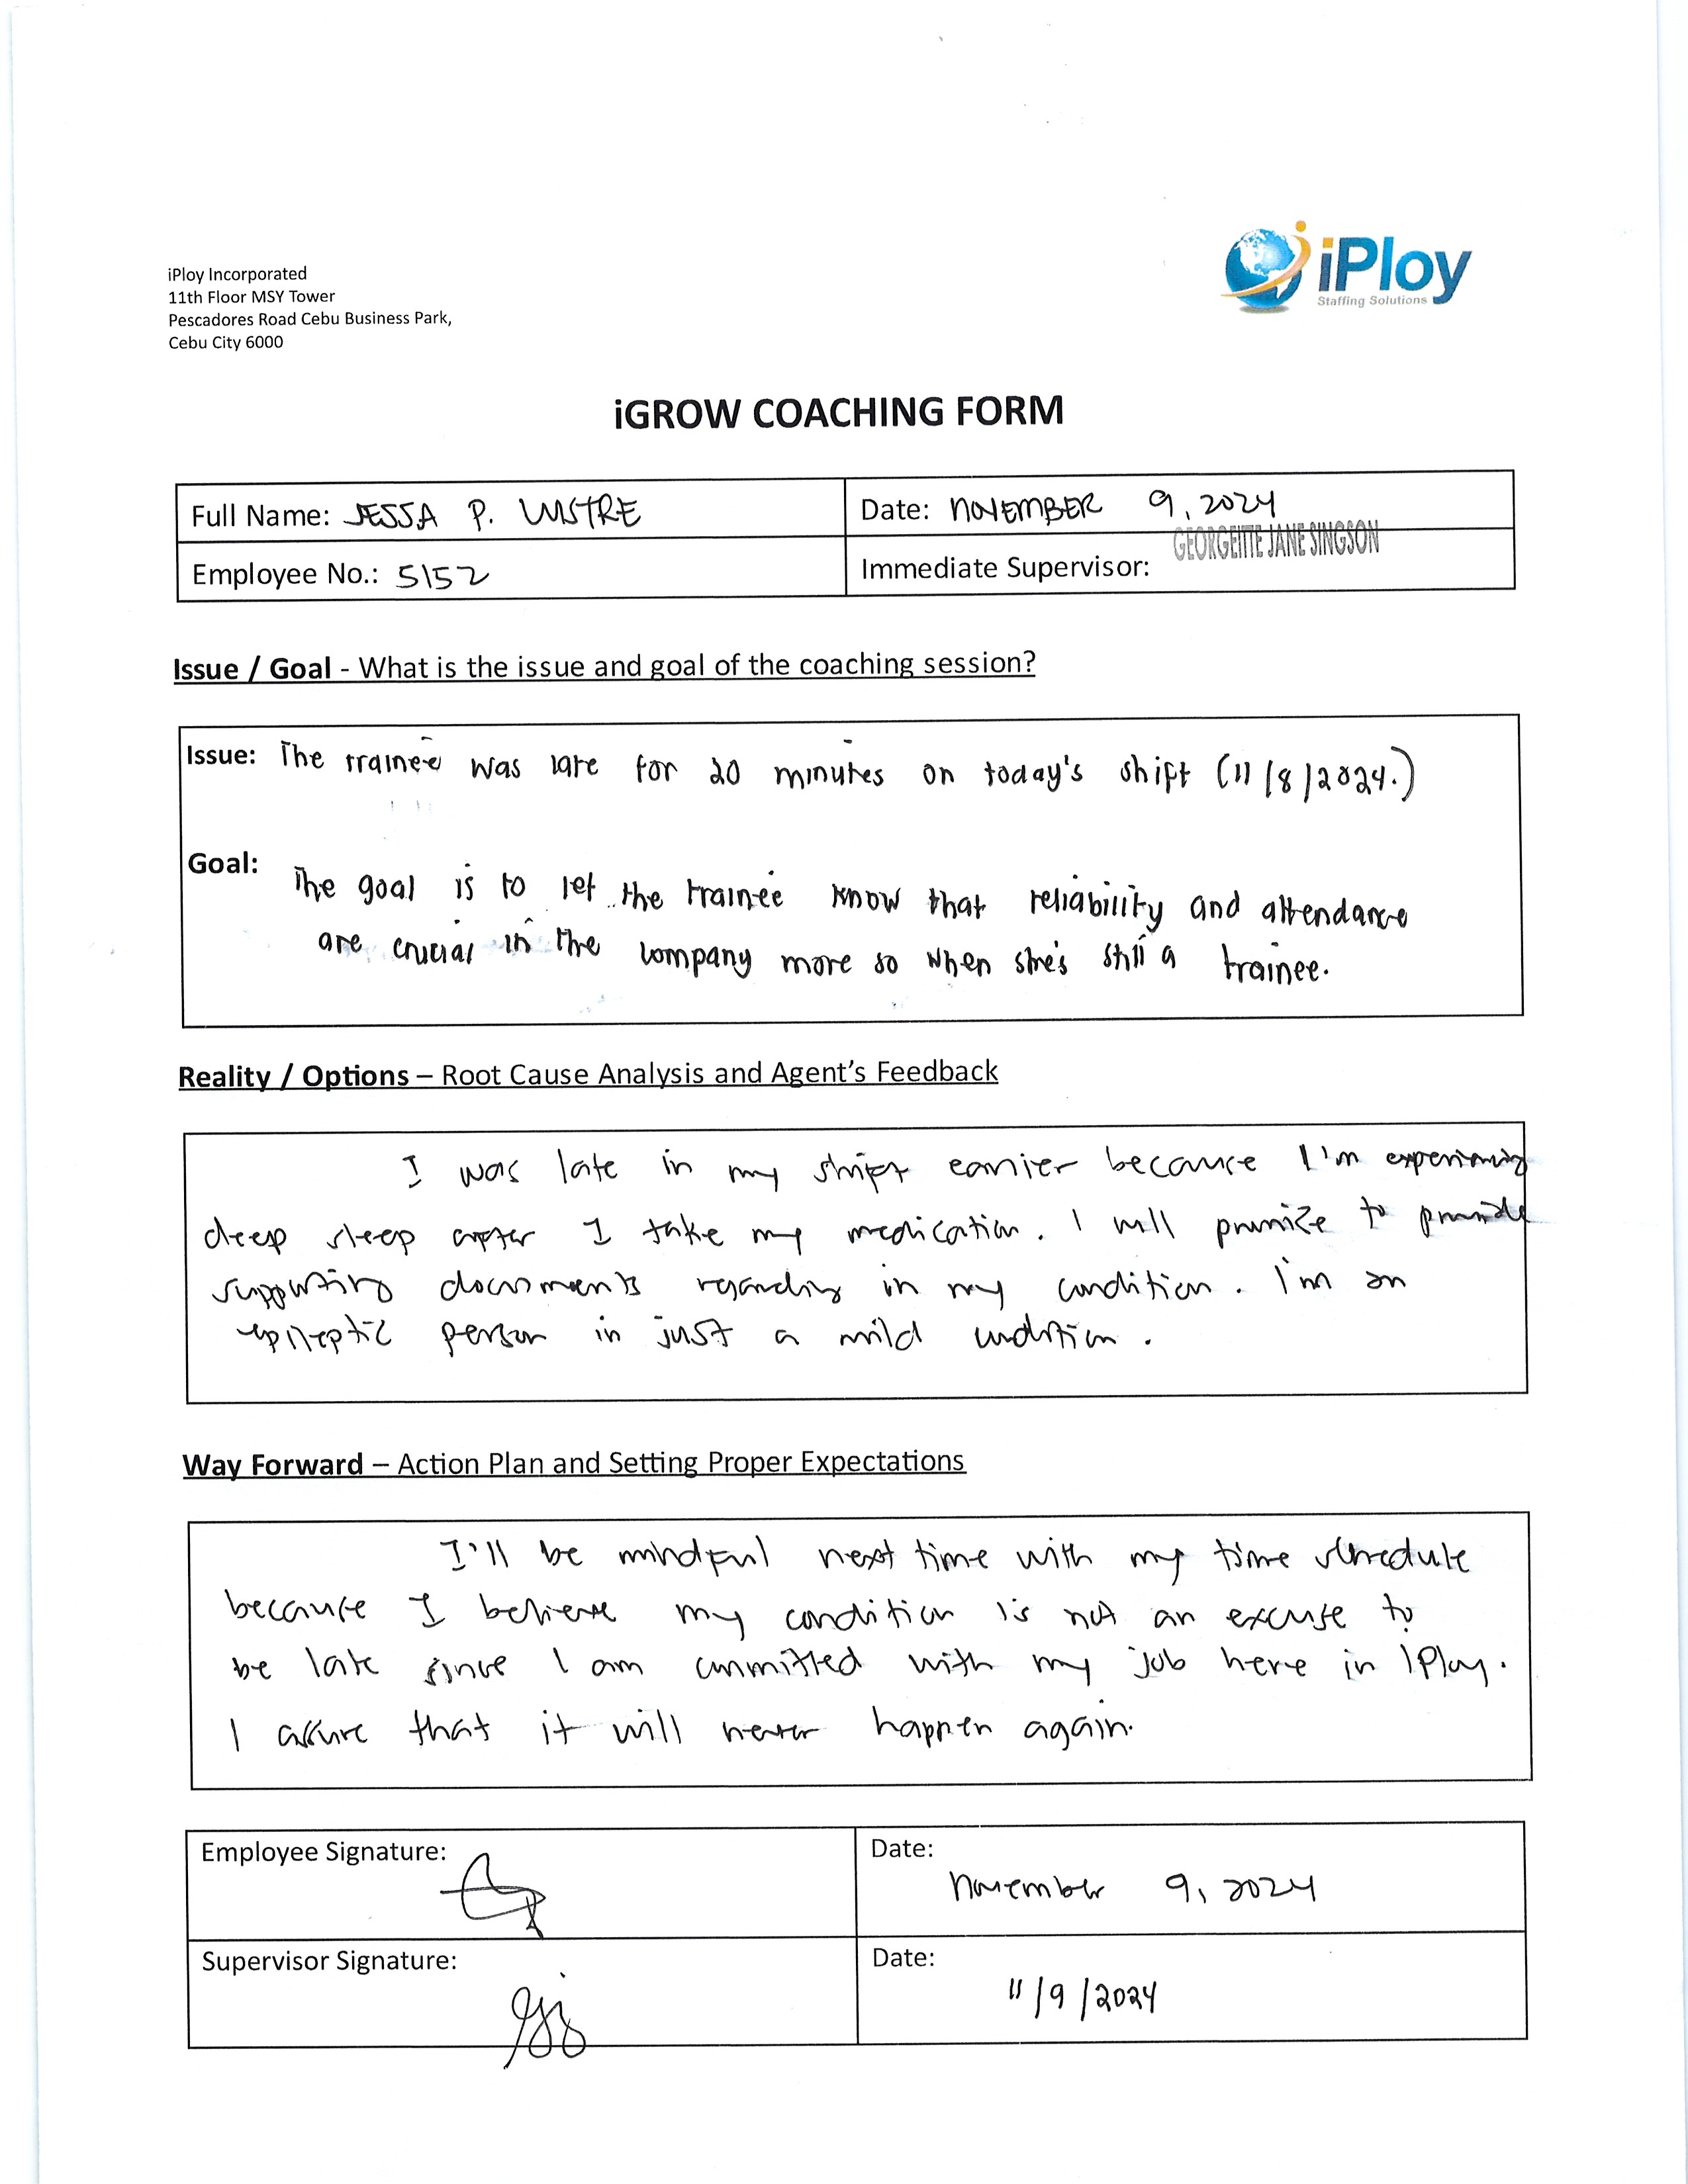 iPloy Incorporated
11th Floor MSY Tower
Pescadores Road Cebu Business Park,
Cebu City 6000
iPloy
Staffing Solutions
iGROW COACHING FORM
Full Name: JESSA P. LUSTRE
Date: NOVEMBER 9, 2024
Employee No.: 5152
Immediate Supervisor: GEORGETTE JANE SINGSON
Issue / Goal - What is the issue and goal of the coaching session?
Issue: The trainee was late for 20 minutes on today's shift (11/8/2024.)
Goal: The goal is to let the trainee know that reliability and attendance
are crucial in the company more so when she's still a trainee.
Reality / Options – Root Cause Analysis and Agent's Feedback
I was late in my shift earlier because I'm experiencing
deep sleep after I take my medication. I will promise to provide
supporting documents regarding in my condition. I'm an
epileptic person in just a mild condition.
Way Forward – Action Plan and Setting Proper Expectations
I'll be mindful next time with my time schedule
because I believe my condition is not an excuse to
be late since I am committed with my job here in IPloy.
I assure that it will never happen again.
Employee Signature:
Date: November 9, 2024
Supervisor Signature:
Date: 11/9/2024